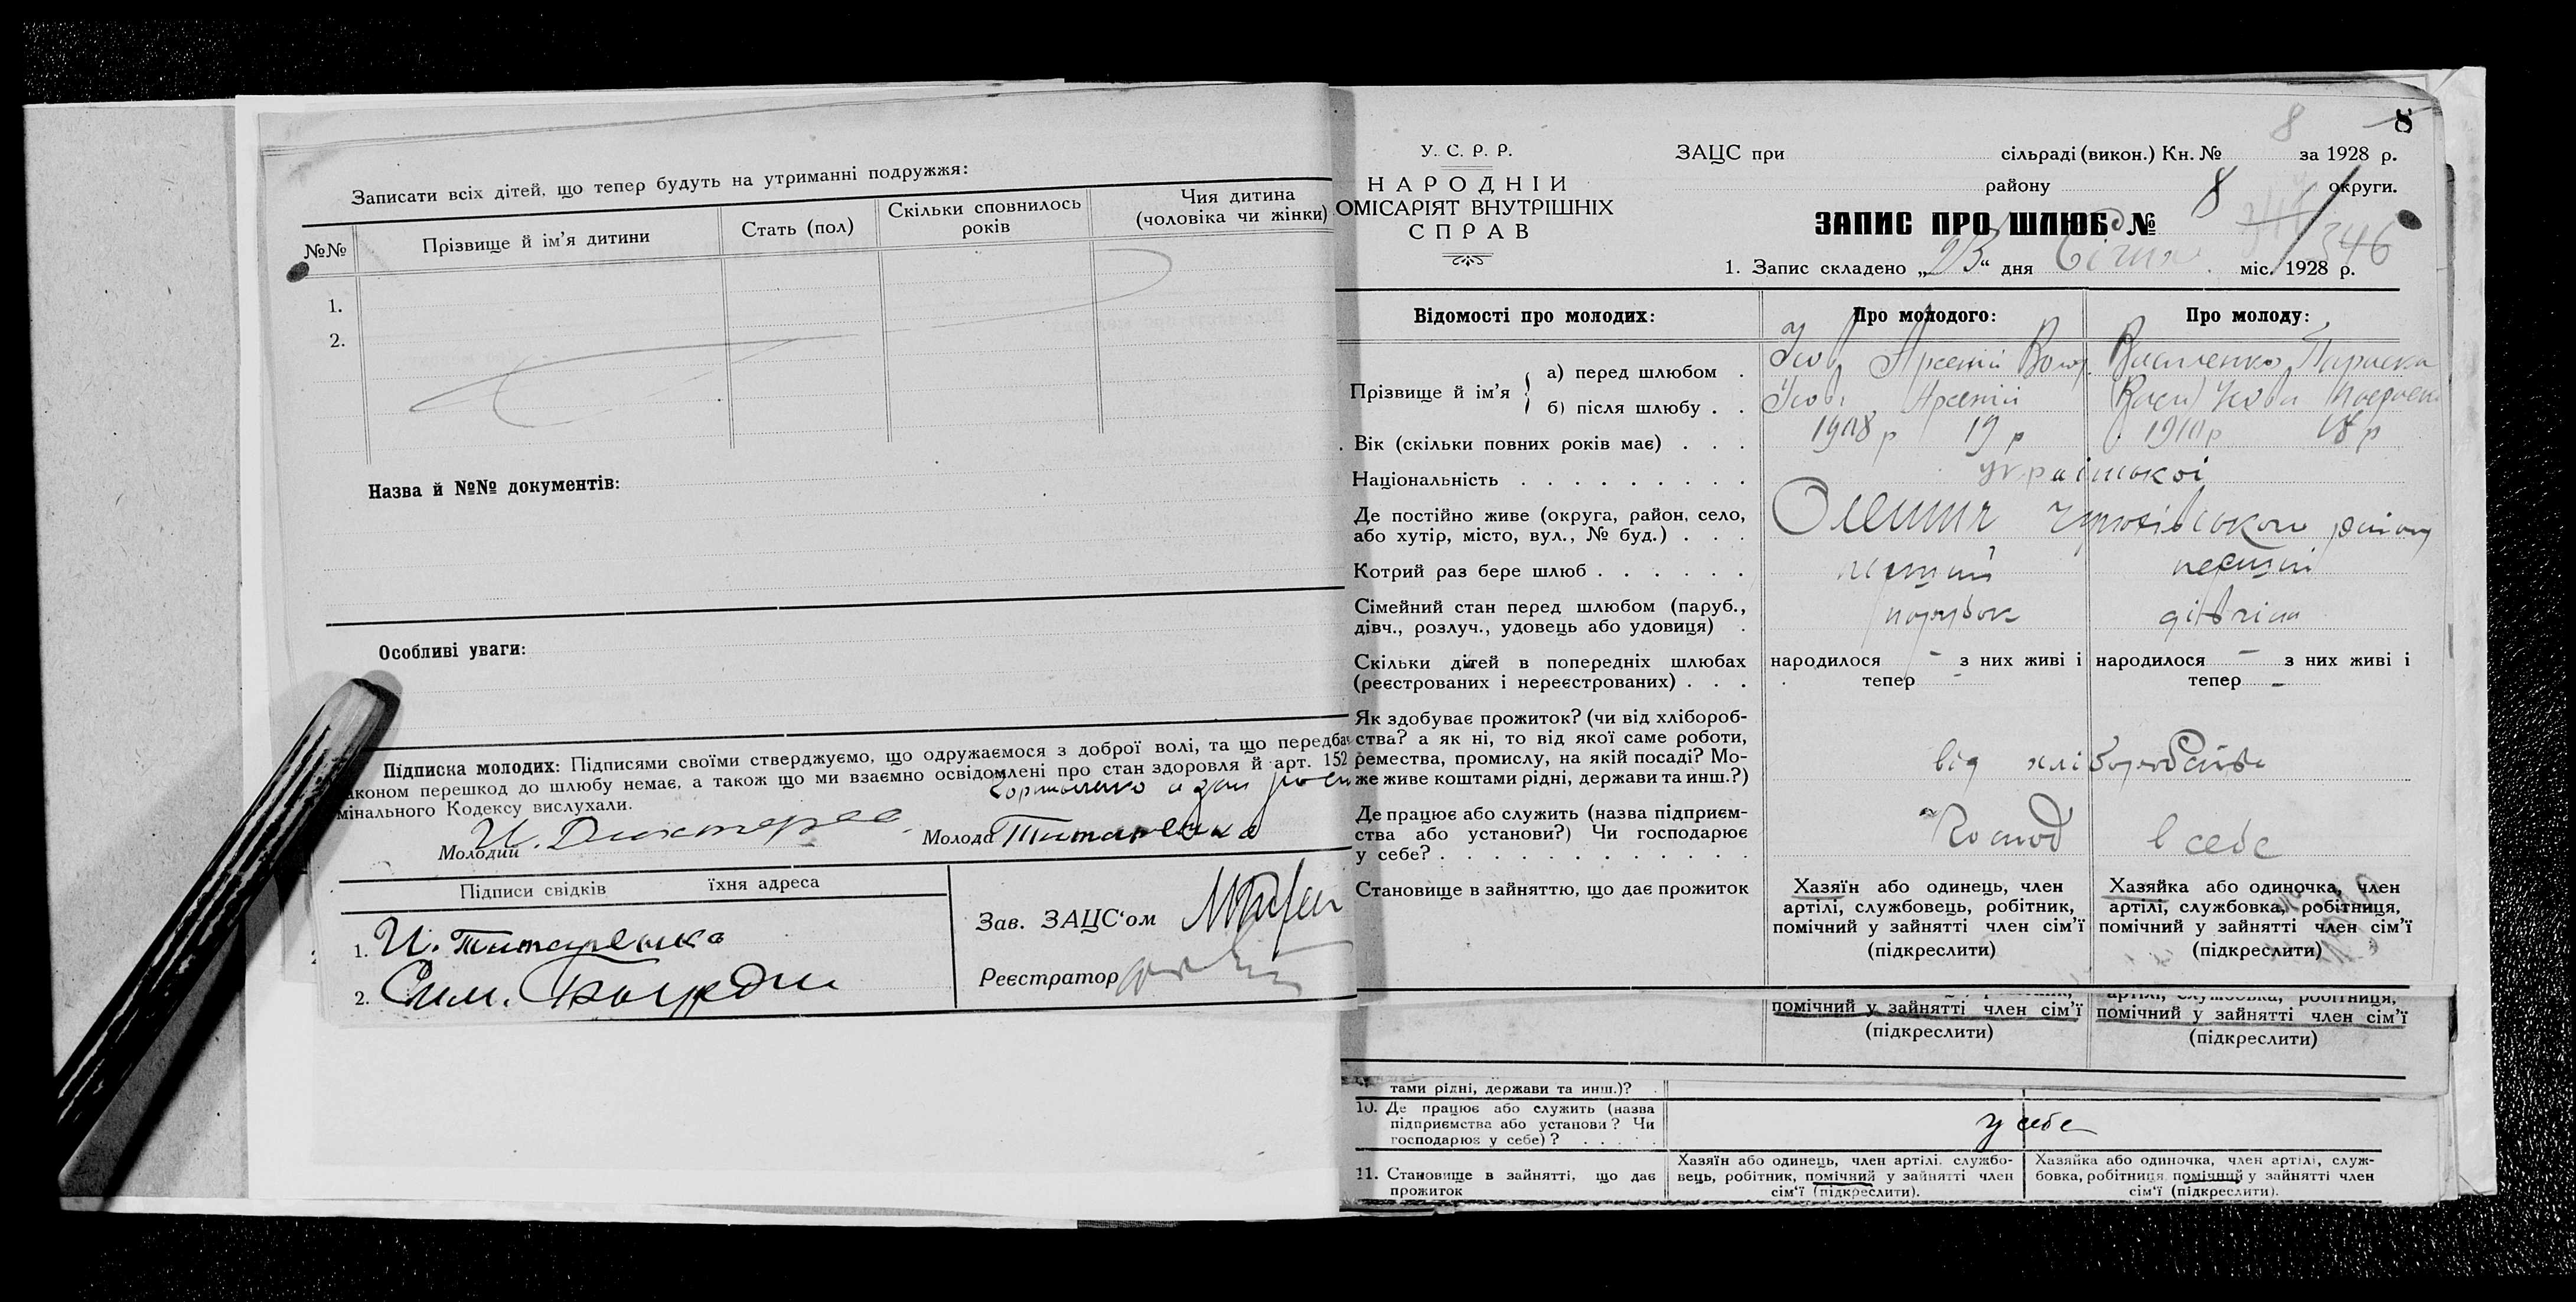 Записати всіх дітей, що тепер будуть на утриманні подружжя:
№№
Прізвище й ім'я дитини
Стать (пол)
Скільки сповнилось
років
Чия дитина
(чоловіка чи жінки)
1.
2.
Назва й №№ документів:
Особливі уваги:
Підписка молодих: Підписями своїми стверджуємо, що одружаємося з доброї волі, та що передба
аконом перешкод до шлюбу немає, а також що ми взаємно освідомлені про стан здоровля й арт. 152
мінального Кодексу вислухали.
Молодий
Молода Титаренко
Підписи свідків їхня адреса
1. И. Титаренко
2.
Зав. ЗАЦС'ом
Реєстратор
8
8
У. С. Р. Р.
НАРОДНІЙ
ОМІСАРІЯТ ВНУТРІШНІХ
СПРАВ
ЗАЦС при сільраді (викон.) Кн. № за 1928 р.
району округи.
ЗАПИС ПРО ШЛЮБ № 8
346
1. Запис складено „23“ дня Січня міс. 1928 р.
Відомості про молодих:
Про молодого:
Про молоду:
Прізвище й ім'я
а) перед шлюбом
Арсеній
Василенко Параска
б) після шлюбу
Арсеній
Вік (скільки повних років має)
1908 р 19 р
1910 р 18 р
Національність
української
Де постійно живе (округа, район, село,
або хутір, місто, вул., № буд.)
району
Котрий раз бере шлюб
перший
перший
Сімейний стан перед шлюбом (паруб.,
дівч., розлуч., удовець або удовиця)
парубок
дівчина
Скільки дітей в попередніх шлюбах
(реєстрованих і нереєстрованих)
народилося - з них живі і
тепер -
народилося - з них живі і
тепер -
Як здобуває прожиток? (чи від хлібороб-
ства? а як ні, то від якої саме роботи,
ремества, промислу, на якій посаді? Мо-
же живе коштами рідні, держави та инш.?)
від хліборобства
Де працює або служить (назва підприєм-
ства або установи?) Чи господарює
у себе?
Господ в себе
Становище в зайняттю, що дає прожиток
Хазяїн або одинець, член
артілі, службовець, робітник,
помічний у зайнятті член сім'ї
(підкреслити)
Хазяйка або одиночка, член
артілі, службовка, робітниця,
помічний у зайнятті член сім'ї
(підкреслити)
помічний у зайнятті член сім'ї
(підкреслити)
артілі, службовка, робітниця,
помічний у зайнятті член сім'ї
(підкреслити)
тами рідні, держави та инш.)?
10. Де працює або служить (назва
підприємства або установи? Чи
господарює у себе)?
у себе
11. Становище в зайнятті, що дає
прожиток
Хазяїн або одинець, член артілі, службо-
вець, робітник, помічний у зайнятті член
сім'ї (підкреслити).
Хазяйка або одиночка, член артілі, служ-
бовка, робітниця, помічний у зайнятті член
сім'ї (підкреслити).